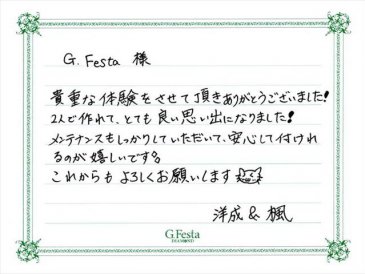 G. Festa 様
貴重な体験をさせて頂きありがとうございました!
2人で作れて、とても良い思い出になりました!
メンテナンスもしっかりしていただいて、安心して付けれ
るのが嬉しいです。
これからもよろしくお願いします
洋成 & 楓
G.Festa
DIAMOND